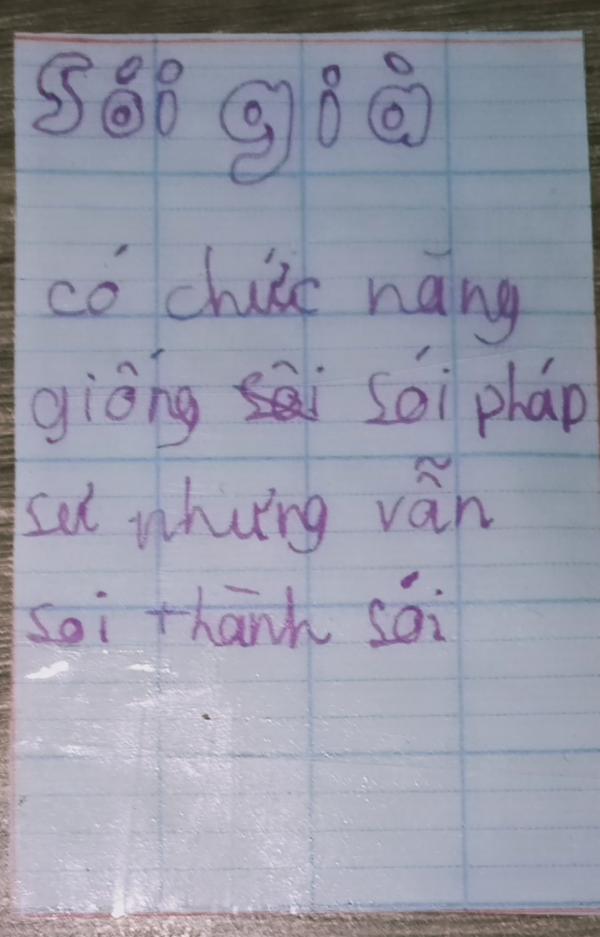 Sói già
có chức năng
giống sói pháp
sư nhưng vẫn
soi thành sói